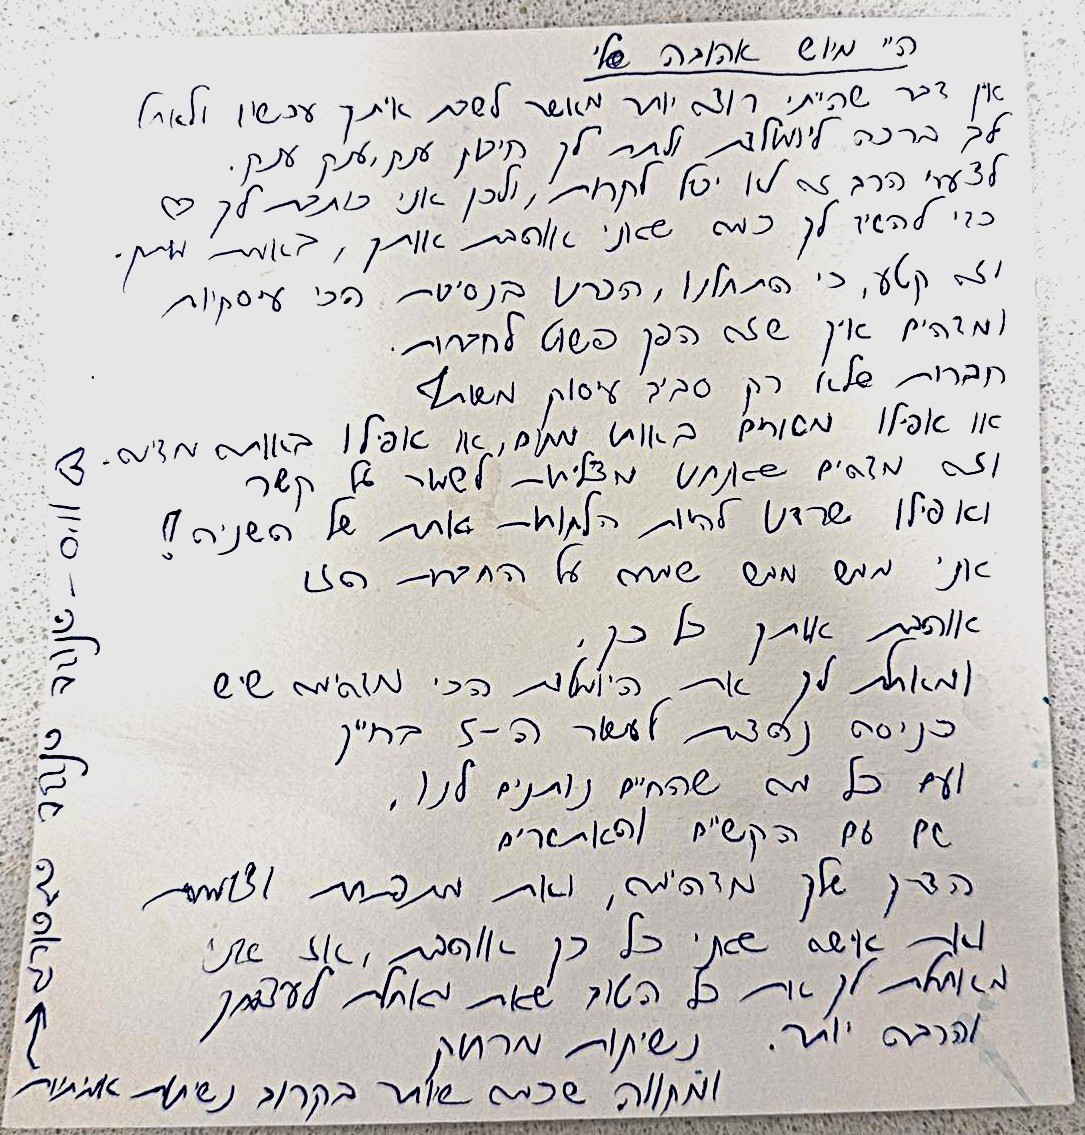 היי מיוש אהובה שלי
אין דבר שהייתי רוצה יותר מאשר לשבת איתך עכשיו ולאחל
לך ברכה ליומולדת ולתת לך חיבוק ענק, ענק ענק.
לצערי הרב זה לא יכול לקרות, ולכן אני כותבת לך ♡
כדי להגיד לך כמה שאני אוהבת אותך, באמת מותק.
וזה קטע, כי התחלנו, הכרנו בנסיבות הכי עיסקיות
ומדהים איך שזה הפך פשוט לחברות.
חברות שלא רק סביב עיסוק משותף
או אפילו מגורים באותו מקום, או אפילו באותה מדינה.
וזה מדהים שאנחנו מצליחות לשמור על קשר
ואפילו שרדנו להיות הלקוחות אחת של השניה!!
אני ממש ממש שמחה על החברות הזו
אוהבת אותך כל כך,
ומאחלת לך את היומולדת הכי מדהימה שיש
כניסה נוצצת לעשור ה-5 בחייך
ועם כל מה שהחיים נותנים לנו,
גם עם הקשיים והאתגרים
הדרך שלך מדהימה, ואת מתפתחת וצומחת
ואת אישה שאני כל כך אוהבת, אז אני
מאחלת לך את כל הטוב שאת מאחלת לעצמך
והרבה יותר. נשיקות מרחוק
ומקווה שכמה שיותר בקרוב נשיקות אמיתיות